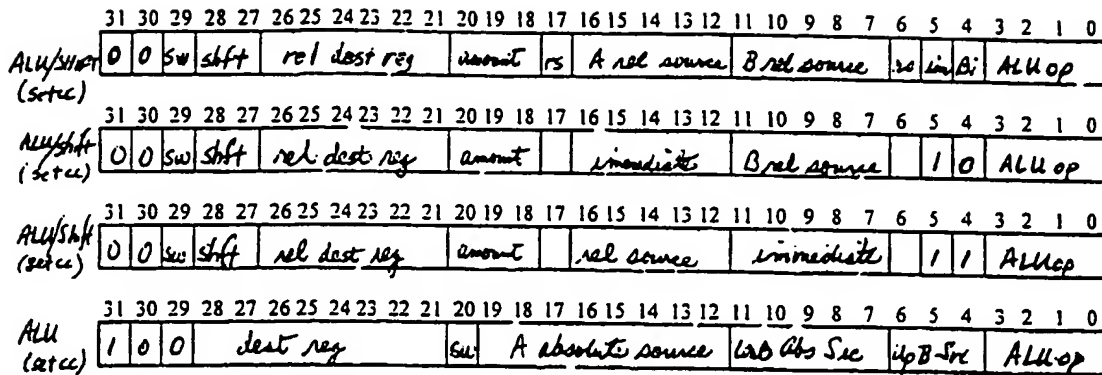 31 30 29 28 27 26 25 24 23 22 21 20 19 18 17 16 15 14 13 12 11 10 9 8 7 6 5 4 3 2 1 0
ALU/SHIFT 0 0 SW shft rel dest reg amount rs A rel source B rel source im Bi ALU op
(setcc)
31 30 29 28 27 26 25 24 23 22 21 20 19 18 17 16 15 14 13 12 11 10 9 8 7 6 5 4 3 2 1 0
ALU/Shft 0 0 SW Shft rel dest reg amount immediate B rel source 1 0 ALU op
(setcc)
31 30 29 28 27 26 25 24 23 22 21 20 19 18 17 16 15 14 13 12 11 10 9 8 7 6 5 4 3 2 1 0
ALU/Shft 0 0 SW Shft rel dest reg amount rel source immediate 1 1 ALUop
(setcc)
31 30 29 28 27 26 25 24 23 22 21 20 19 18 17 16 15 14 13 12 11 10 9 8 7 6 5 4 3 2 1 0
ALU 1 0 0 dest reg SW A absolute source B Abs Src B-Src ALU-op
(setcc)